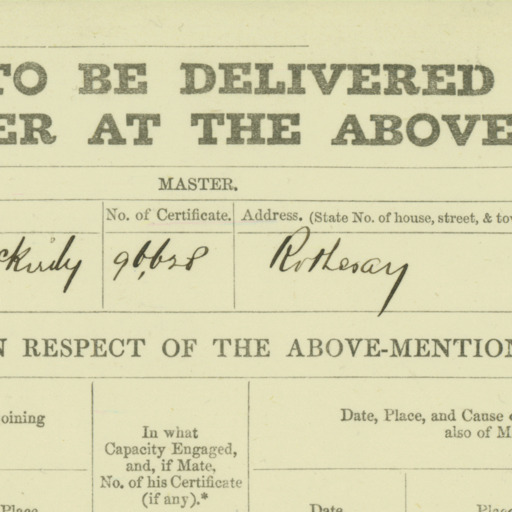 TO BE DELIVERED
ER AT THE ABOVE
MASTER.
No. of Certificate. Address. (State No. of house, street, & to
ckirdy 96,628 Rothesay
N RESPECT OF THE ABOVE-MENTION
oining
In what
Capacity Engaged,
and, if Mate,
No. of his Certificate
(if any).*
Date, Place, and Cause
also of M
Place
Date
Place